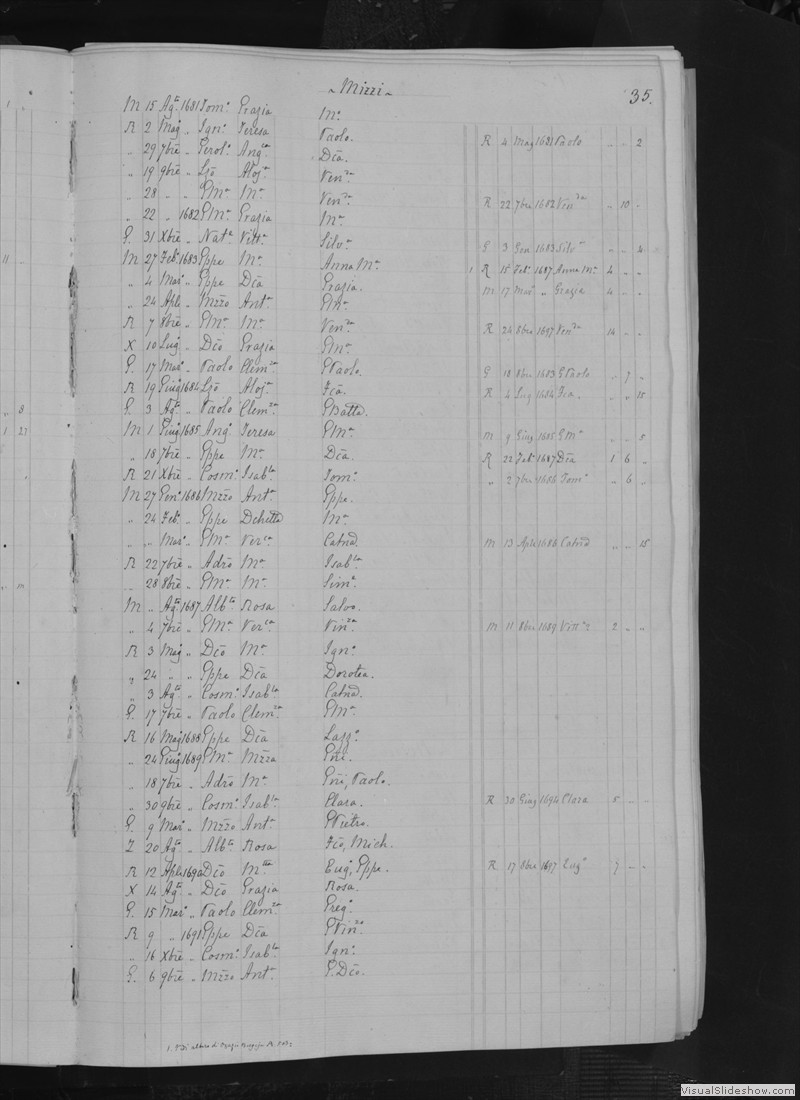 Mizzi
35.
M 15 Agto 1681 Toma Grazia Ma
R 2 Mago „ Igno Teresa Paolo. R 4 Mag 1681 Paolo „ „ 2
„ 29 7bre „ Angca Dca.
„ 19 9bre „ Aloja Venza
„ 28 „ „ GMa Ma Venza R 22 7bre 1682 Venza „ 10 „
„ 22 „ 1682 GMa Grazia Ma
G. 31 Xbre „ Nate Vitta Silva G 3 Gen 1683 Silva „ „ 4
M 27 Feb 1683 Gppe Ma Anna Ma 1 R 15 Feb 1687 Anna Ma 4 „ „
„ 4 Maro „ Gppe Dca Grazia. M 17 Maro „ Grazia 4 „ „
„ 24 Aple „ Mzzo Anta GMa
R 7 8bre „ GMa Ma Venza R 24 8bre 1697 Venza 14 „ „
X 10 Lugo „ Dco Grazia GMa
G. 17 Maro „ Paolo Clemza GPaolo. G 18 8bre 1683 GPaolo „ 7 „
R 19 Giug 1684 Aloja Fca. R 4 Lug 1684 Fca. „ „ 15
G. 3 Agto „ Paolo Clemza GBatta.
M 1 Giug 1685 Ango Teresa GMa M 9 Giug 1685 GMa „ „ 5
„ 18 7bre „ Gppe Ma Dca. R 22 Feb 1687 Dca 1 6 „
R 21 Xbre „ Cosmo Isabla Tomo „ 2 7bre 1686 Tomo „ 6 „
M 27 Geno 1686 Mzzo Anta Gppe.
„ 24 Feb „ Gppe Dchetta Ma
„ „ Maro „ GMa Verca Catna. M 13 Aple 1686 Catna „ „ 15
R 22 7bre „ Adro Ma Isabla
„ 28 8bre „ GMa Ma Sima
M „ Agto 1687 Albto Rosa Salvo.
„ 4 7bre „ GMa Verca Vinza M 11 8bre 1689 2 „ „
R 3 Mago „ Dco Ma Igno
„ 24 „ „ Gppe Dca Dorotea.
„ 3 Agto „ Cosmo Isabla Catna.
G. 17 7bre „ Paolo Clemza GMa
R 16 Mago 1688 Gppe Dca
„ 24 Giug 1689 GMa Mzza Gni.
„ 18 7bre „ Adro Ma Gni, Paolo.
„ 30 9bre „ Cosmo Isabla Clara. R 30 Giug 1694 Clara 5 „ „
G. 9 Maro „ Mzzo Anta GPietro.
Z 20 Agto „ Albto Rosa Fco, Mich.
R 12 Aple 1690 Dco Eugo, Gppe. R 17 8bre 1697 Eugo 7 „ „
X 14 Agto „ Dco Grazia Rosa.
G. 15 Maro „ Paolo Clemza Grego.
R 9 „ 1691 Gppe Dca GVinzo
„ 16 Xbre „ Cosmo Isabla Igno
G. 6 9bre „ Mzzo Anta G. Dco.
11 „
„ 8
1 27
VisualSlideshow.com